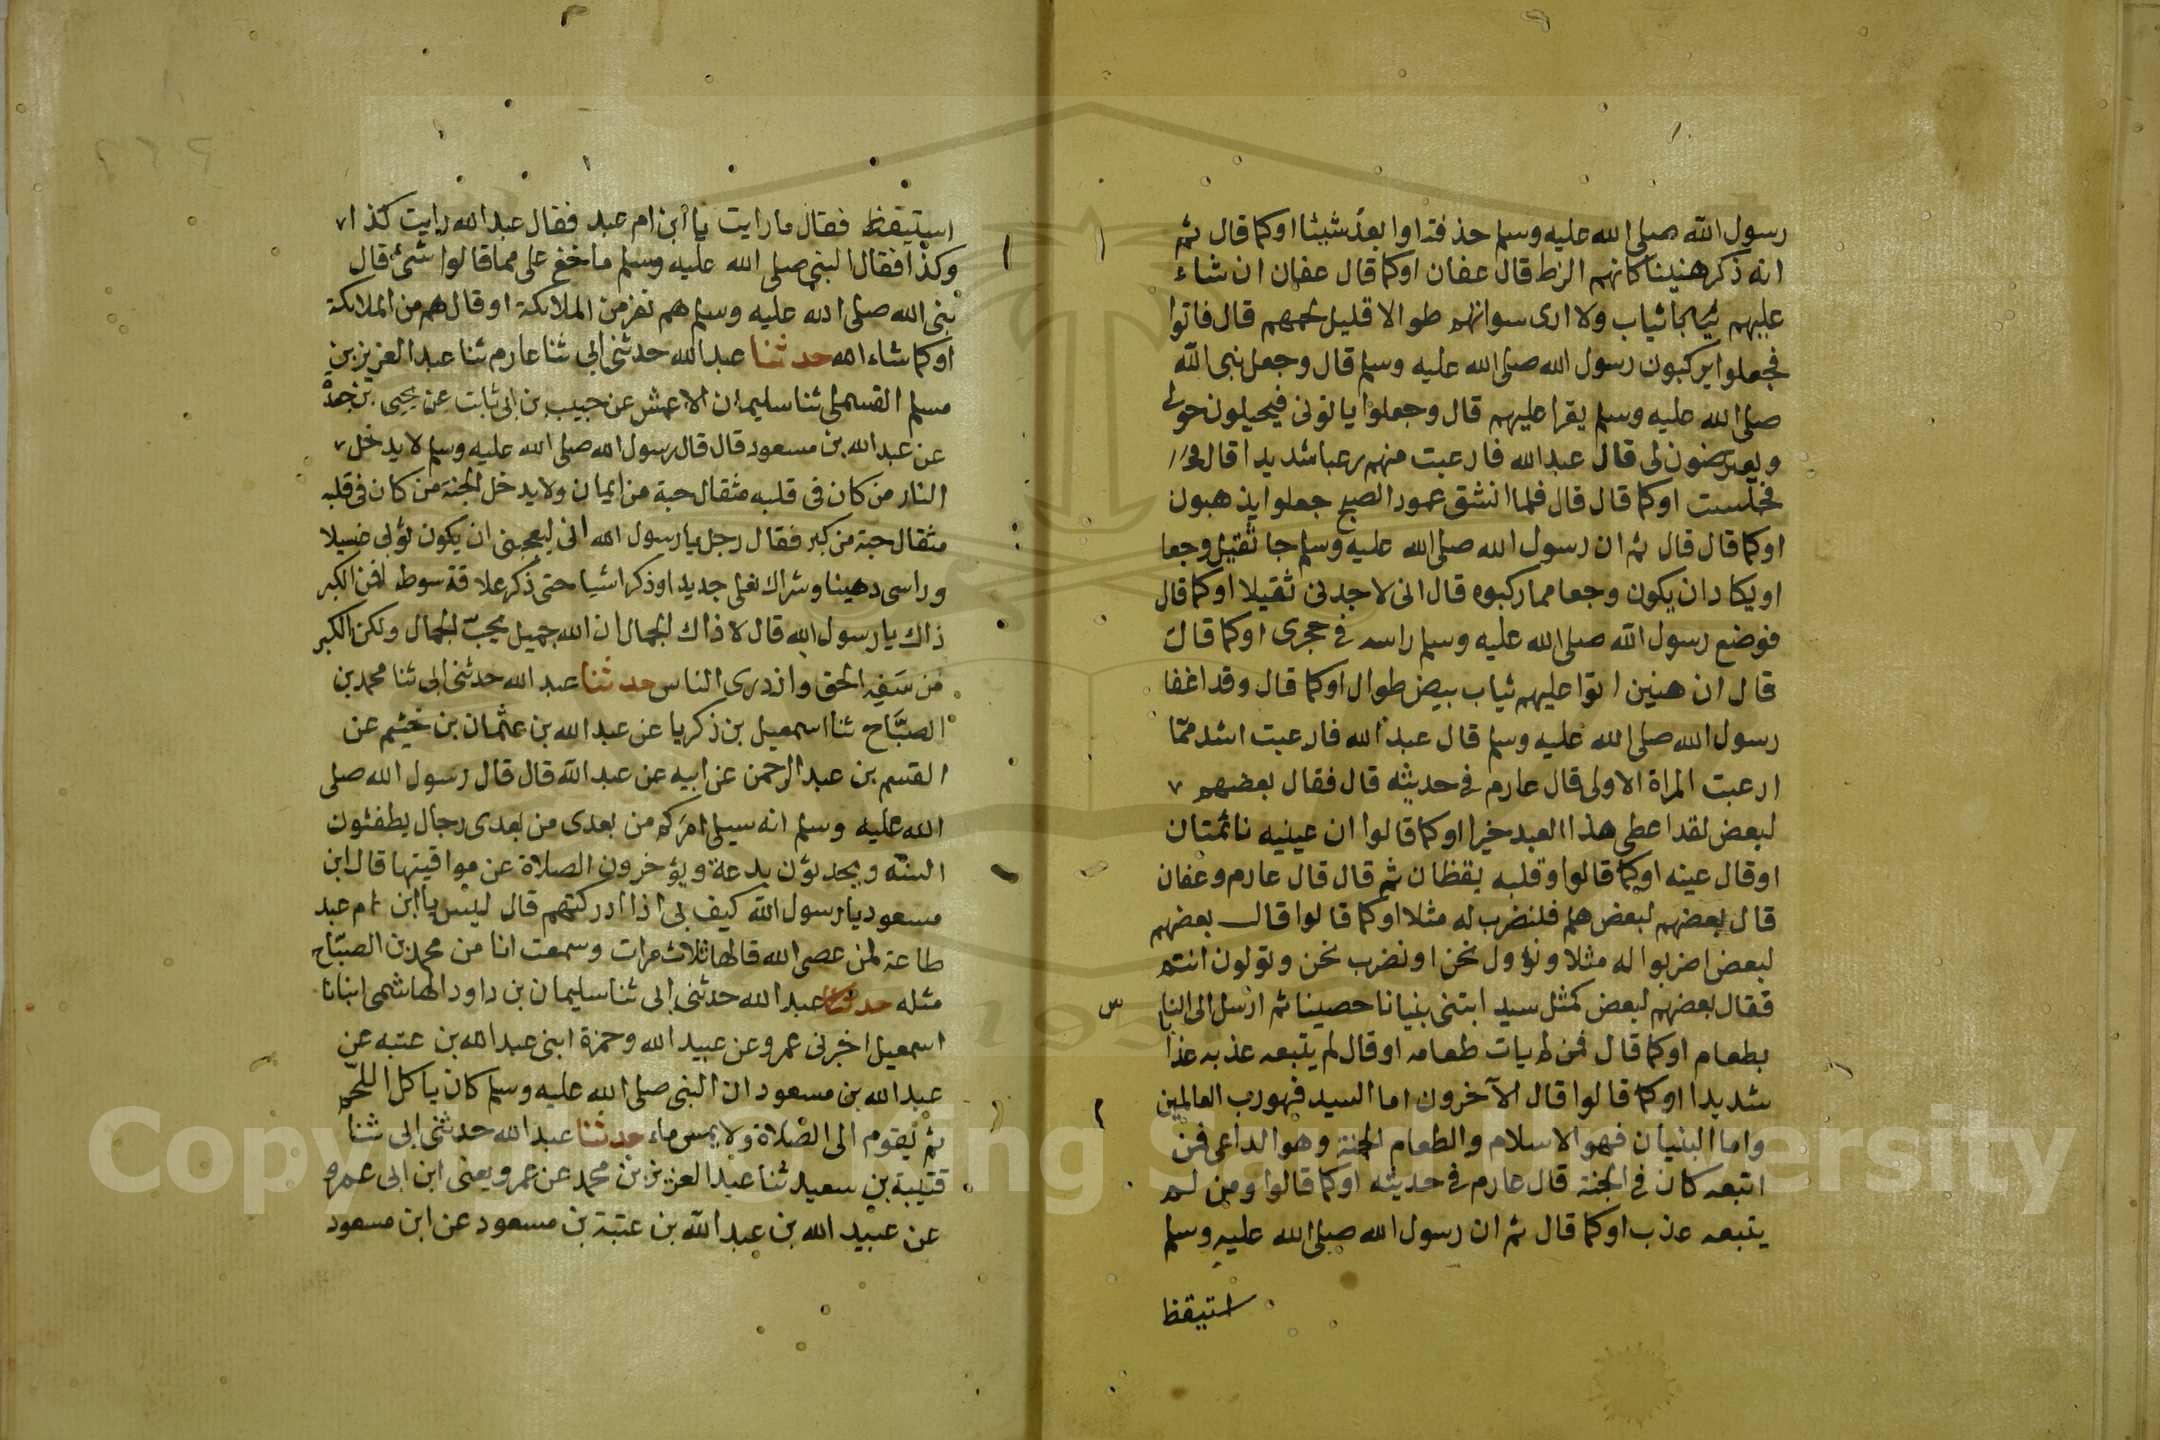 رسول الله صلى الله عليه وسلم حذفة او ابعد شيئا اوكما قال ثم
انه ذكر هنينا كانهم الزط قال عفان اوكما قال عفان ان شاء
عليهم ثياب ولا ارى سواتهم طوالا قليل لحمهم قال فاتوا
فجعلوا يركبون رسول الله صلى الله عليه وسلم قال وجعل نبى الله
صلى الله عليه وسلم يقرا عليهم قال وجعلوا ياتونى فيحيلون حولى
ويعترضون لى قال عبد الله فارعبت منهم رعبا شديدا قال
فجلست اوكما قال قال فلما انشق عمود الصبح جعلوا يذهبون
اوكما قال قال ثم ان رسول الله صلى الله عليه وسلم جا ثقيل وجعا
او يكاد ان يكون وجعا مما ركبوه قال انى لاجدنى ثقيلا اوكما قال
فوضع رسول الله صلى الله عليه وسلم راسه فى حجرى اوكما قال
قال ان هنين اتوا عليهم ثياب بيض طوال اوكما قال وقد اغفا
رسول الله صلى الله عليه وسلم قال عبد الله فارعبت اشد مما
ارعبت المراة الاولى قال عارم فى حديثه قال فقال بعضهم
لبعض لقد اعطى هذا العبد خيرا اوكما قالوا ان عينيه نائمتان
اوقال عينه اوكما قالوا وقلبه يقظان ثم قال قال عارم وعفان
قال بعضهم لبعض هلم فلنضرب له مثلا اوكما قالوا قال بعضهم
لبعض اضربوا له مثلا ونؤول نحن او نضرب نحن وتولون انتم
فقال بعضهم لبعض كمثل سيد ابتنى بنيانا حصينا ثم ارسل الى الناس
بطعام اوكما قال فمن لم يات طعامه اوقال لم يتبعه عذبه عذابا
شديدا اوكما قالوا قال الآخرون اما السيد فهو رب العالمين
واما البنيان فهو الاسلام والطعام الجنة وهو الداعى فمن
اتبعه كان فى الجنة قال عارم فى حديثه اوكما قالوا ومن لم
يتبعه عذب اوكما قال ثم ان رسول الله صلى الله عليه وسلم
استيقظ
استيقظ فقال ما رايت يا ابن ام عبد فقال عبد الله رايت كذا
وكذا فقال النبي صلى الله عليه وسلم ما خفى على مما قالوا شئ قال
نبى الله صلى الله عليه وسلم هم نفر من الملائكة اوقال هم من الملائكة
اوكما شاء الله حدثنا عبد الله حدثنى ابى ثنا عارم ثنا عبد العزيز بن
مسلم القسملى ثنا سليمان الاعمش عن حبيب بن ابى ثابت عن يحيى بن جعدة
عن عبد الله بن مسعود قال قال رسول الله صلى الله عليه وسلم لا يدخل
النار من كان فى قلبه مثقال حبة من ايمان ولا يدخل الجنة من كان فى قلبه
مثقال حبة من كبر فقال رجل يا رسول الله انى ليعجبنى ان يكون ثوبى غسيلا
وراسى دهينا وشراك نعلى جديدا وذكر اشيا حتى ذكر علاقة سوطه افمن الكبر
ذاك يا رسول الله قال لا ذاك الجمال ان الله جميل يحب الجمال ولكن الكبر
من سفه الحق وازدرى الناس حدثنا عبد الله حدثنى ابى ثنا محمد بن
الصباح ثنا اسمعيل بن زكريا عن عبد الله بن عثمان بن خثيم عن
القسم بن عبد الرحمن عن ابيه عن عبد الله قال قال رسول الله صلى
الله عليه وسلم انه سيلى امركم من بعدى من بعدى رجال يطفئون
السنة ويحدثون بدعة ويؤخرون الصلاة عن مواقيتها قال ابن
مسعود يا رسول الله كيف بى اذا ادركتهم قال ليس يا ابن ام عبد
طاعة لمن عصى الله قالها ثلاث مرات وسمعت انا من محمد بن الصباح
مثله حدثنا عبد الله حدثنى ابى ثنا سليمان بن داود الهاشمى انبانا
اسمعيل اخبرنى عمرو عن عبيد الله وحمزة ابنى عبد الله بن عتبه عن
عبد الله بن مسعود ان النبى صلى الله عليه وسلم كان ياكل اللحم
ثم يقوم الى الصلاة ولا يمس ماء حدثنا عبد الله حدثنى ابى ثنا
قتيبة بن سعيد ثنا عبد العزيز بن محمد عن عمرو يعنى ابن ابى عمرو
عن عبيد الله بن عبد الله بن عتبة بن مسعود عن ابن مسعود